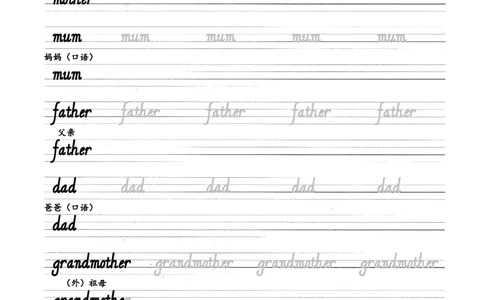 mother
mum mum mum mum mum
妈妈（口语）
mum
father father father father father
父亲
father
dad dad dad dad dad
爸爸（口语）
dad
grandmother grandmother grandmother grandmother
（外）祖母